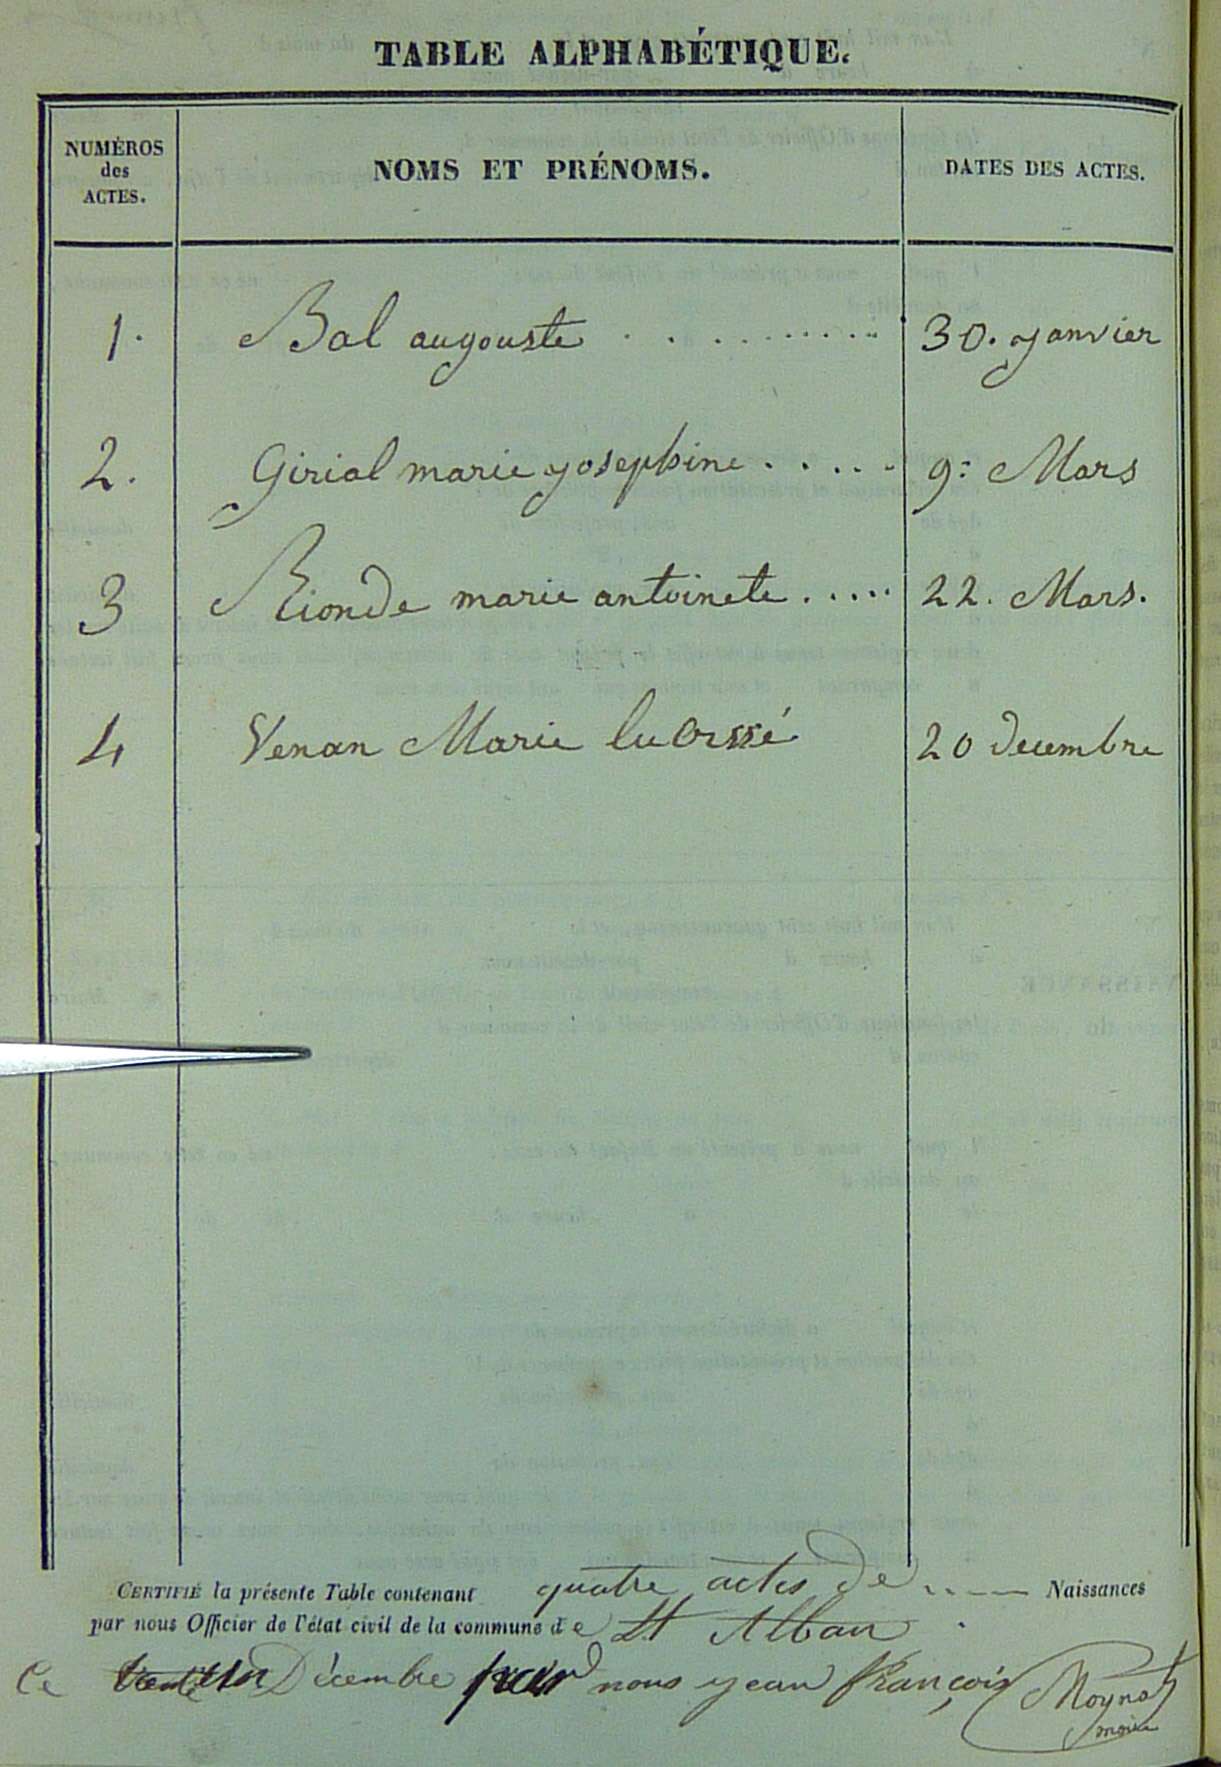 TABLE ALPHABÉTIQUE.
NUMÉROS
des
ACTES.
NOMS ET PRÉNOMS.
DATES DES ACTES.
1. Bal augouste . . . . . . . . . . 30. Janvier
2. Girial marie josephine . . . . . 9: Mars
3 Rionde marie antoinete . . . . . 22. Mars.
4 Venan Marie 20 decembre
CERTIFIÉ la présente Table contenant quatre actes de Naissances
par nous Officier de l'état civil de la commune de St Alban
Ce trente un Décembre par nous jean françois Moynat
maire